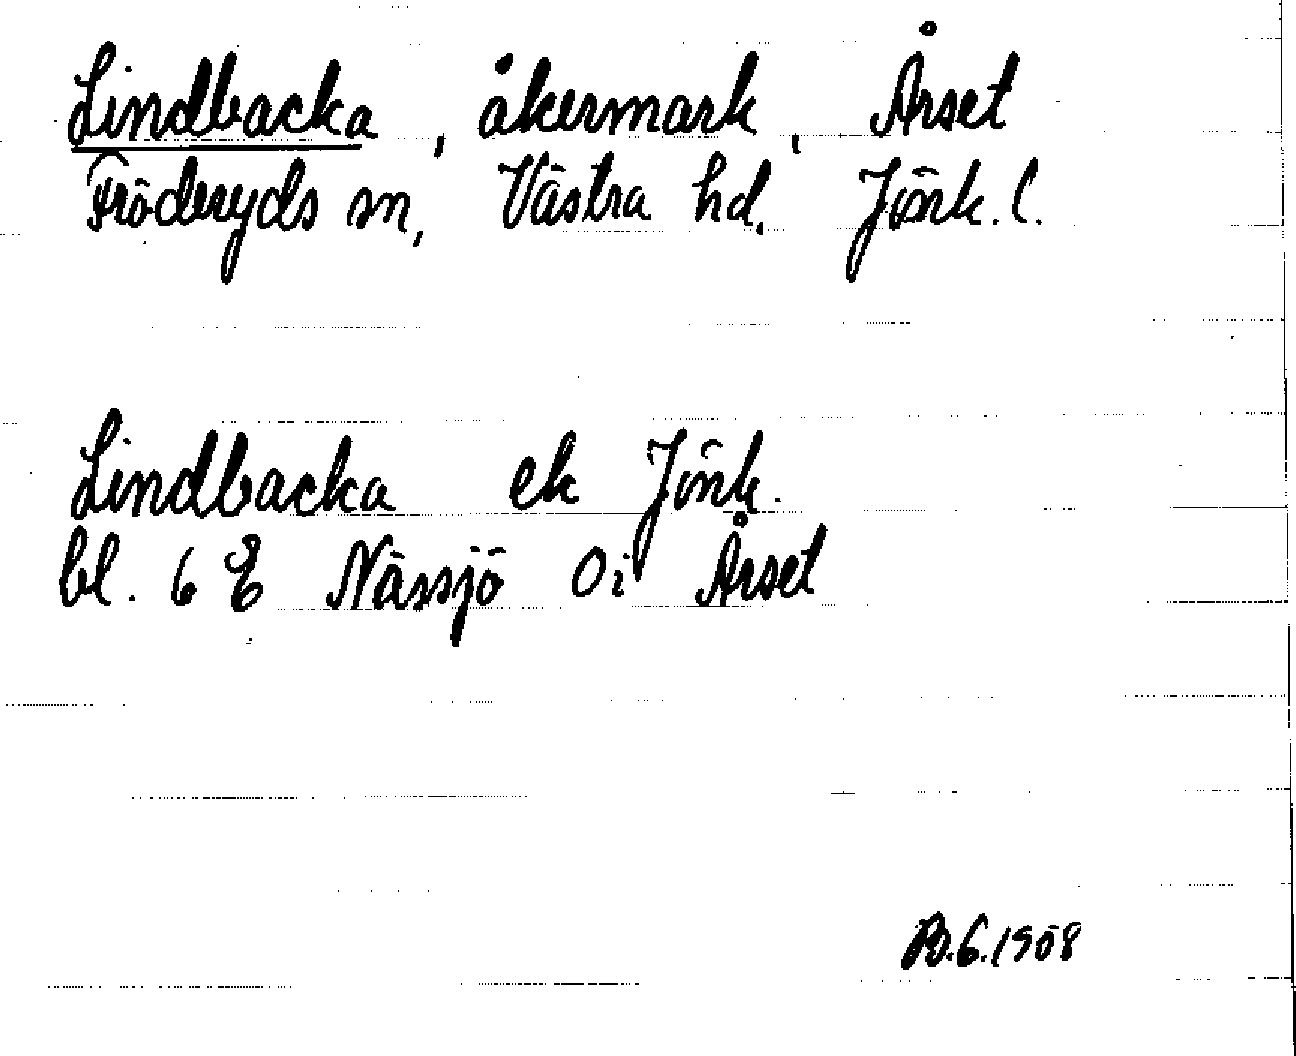 Lindbacka, åkermark, Årset
Fröderyds sn, Västra hd, Jönk. l.
Lindbacka ek Jönk.
bl. 6 E Nässjö 0 i Årset
B.G. 1908